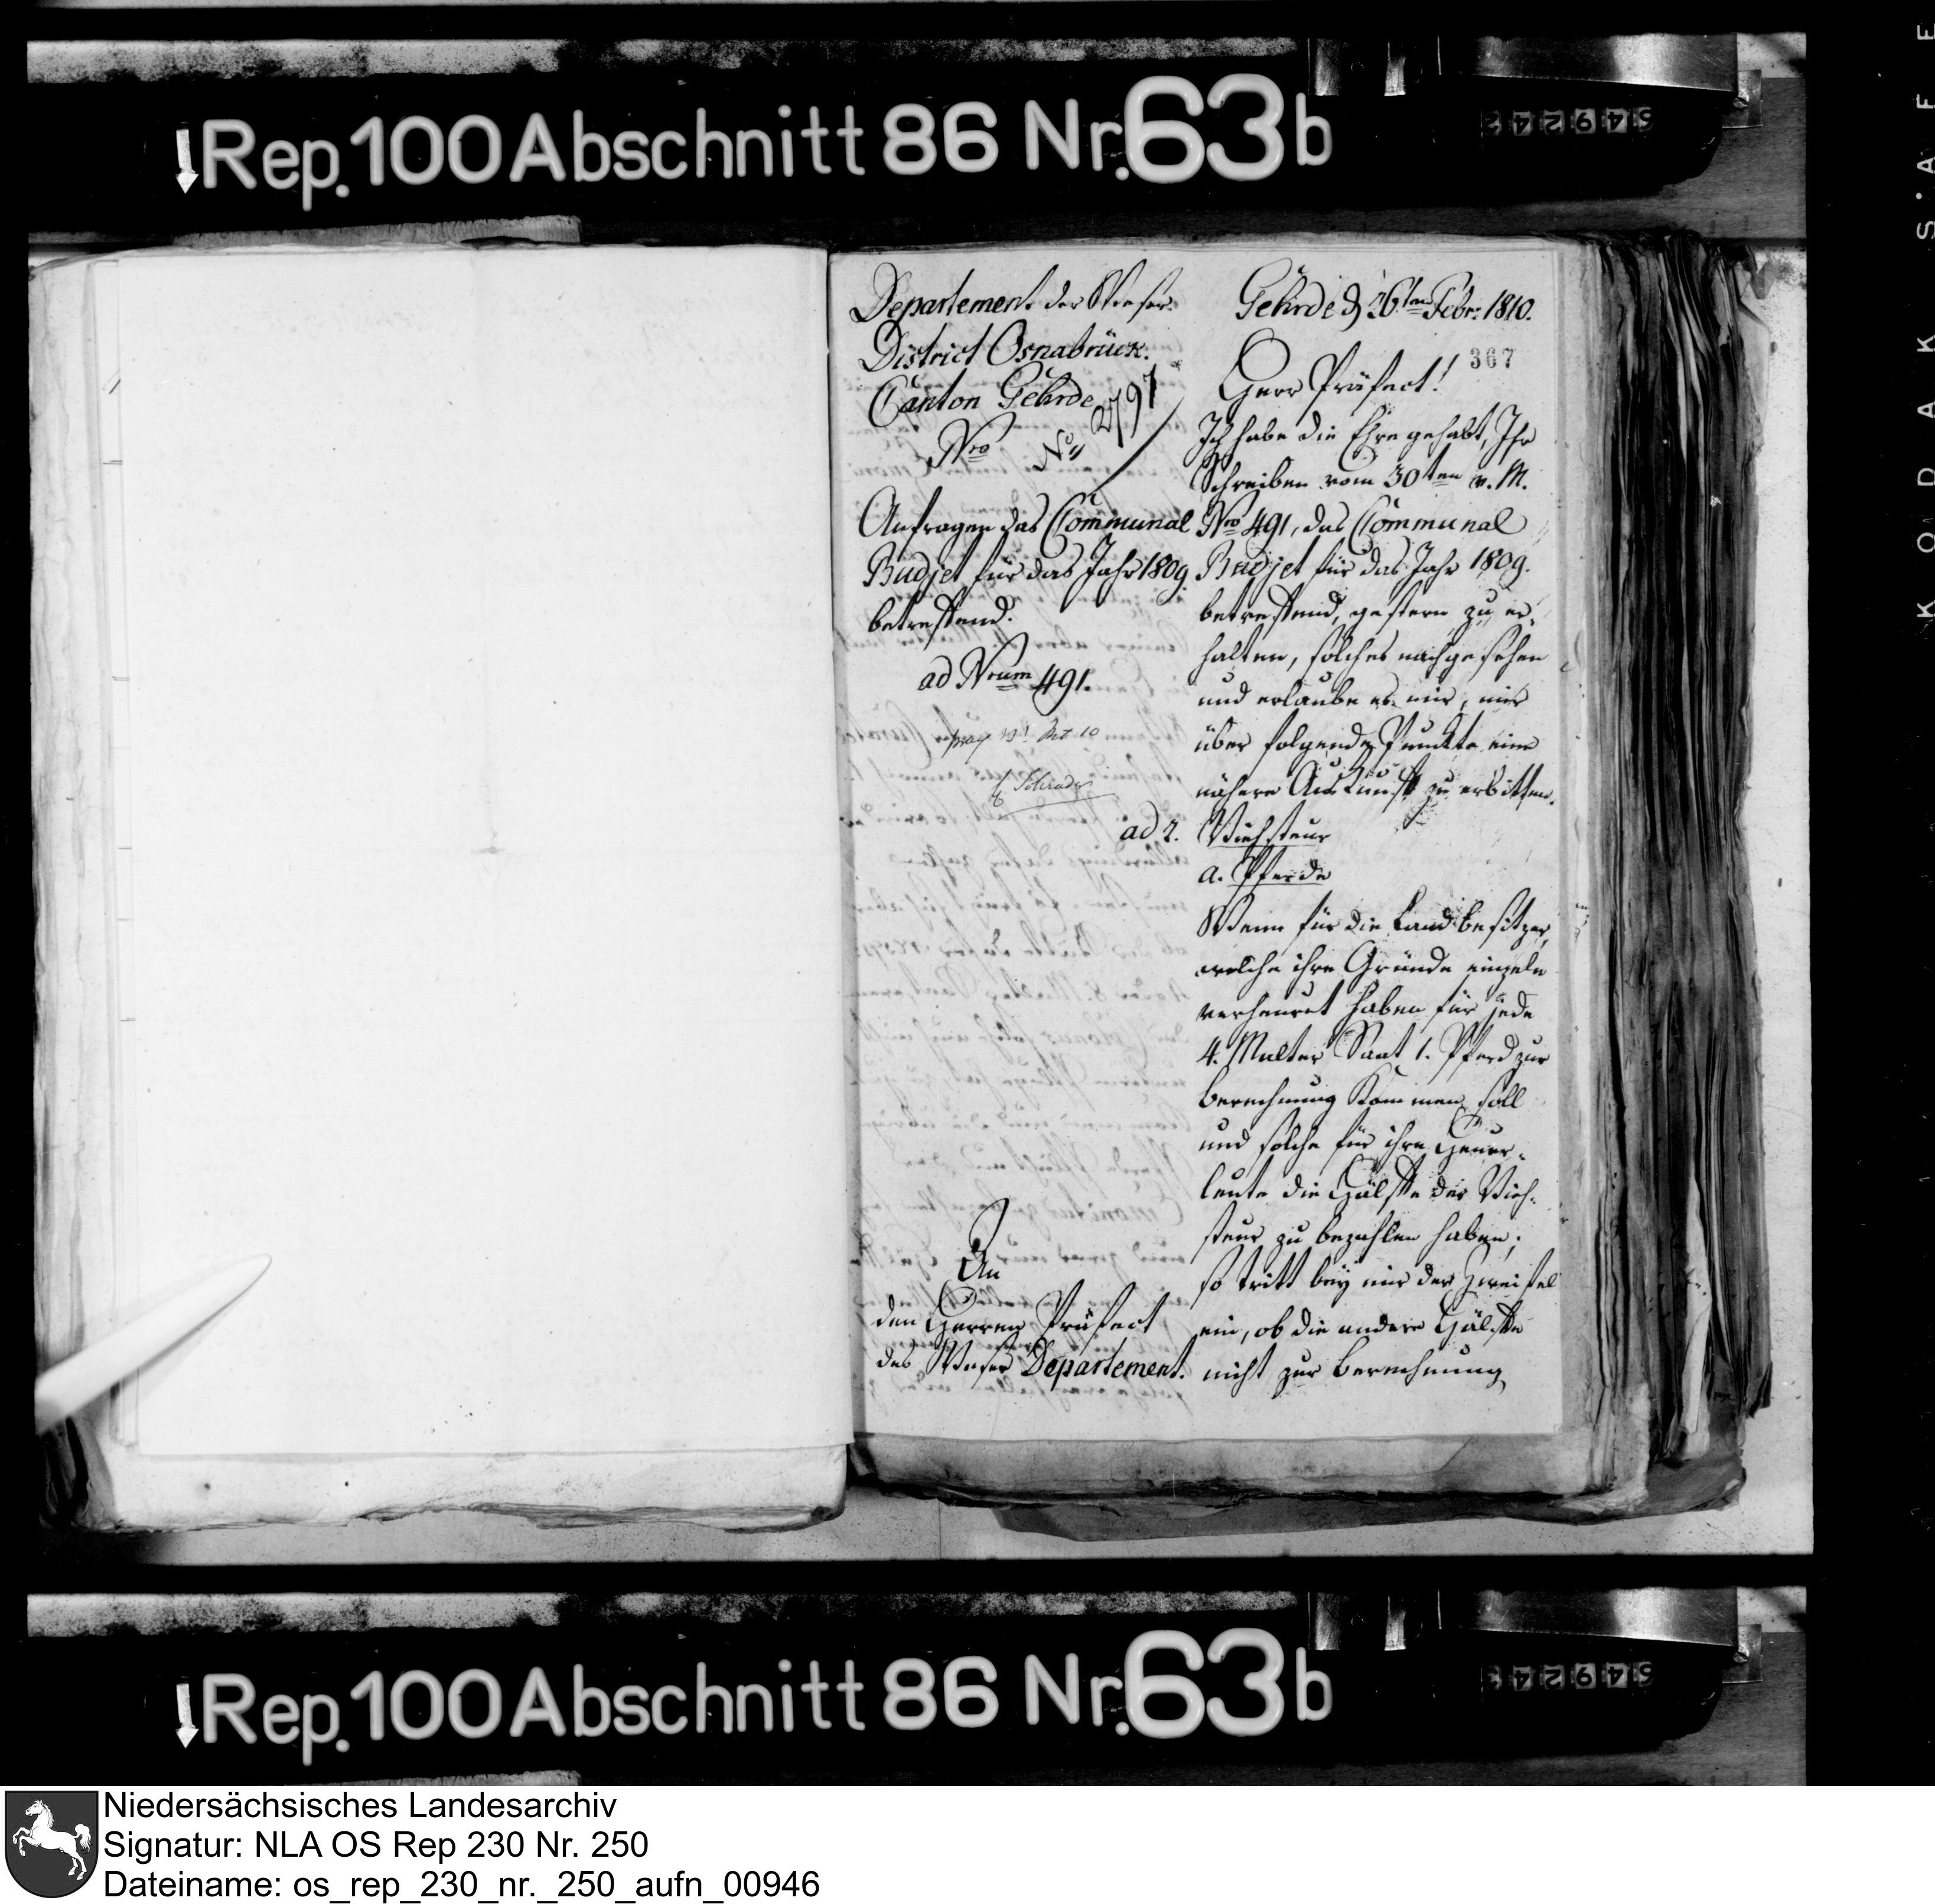 Rep. 100 Abschnitt 86 Nr. 63 b
Departement der Weser.
District Osnabrück.
Canton Gehrde
Nro No 2791
Anfragen das Communal
Budjet für das Jahr 1809
betreffend.
ad Nrum 491.
ad 2.
An
den Herren Präfect
des Weser Departement.
Gehrde d 26ten Febr: 1810.
367
Herr Präfect!
Ich habe die Ehre gehabt, Ihr
Schreiben vom 30ten v. M.
Nro 491, das Communal
Budjet für das Jahr 1809.
betreffend, gestern zu er-
halten, solches nachgesehen
und erlaube es mir, mir
über folgende Punkte eine
nähere Auskunft zu erbitten.
Viehsteur
a. Pferde
Wenn für die Landbesitzer,
welche ihre Gründe einzeln
verheuret haben für jede
4. Malter Saat 1. Pferd zur
Berechnung kommen soll
und solche für ihre Heuer-
leute die Hälfte der Vieh-
steur zu bezahlen haben;
so tritt bey mir der Zweifel
ein, ob die andere Hälfte
nicht zur Berechnung
Rep. 100 Abschnitt 86 Nr. 63 b
KODAK S'AFE
Niedersächsisches Landesarchiv
Signatur: NLA OS Rep 230 Nr. 250
Dateiname: os_rep_230_nr._250_aufn_00946